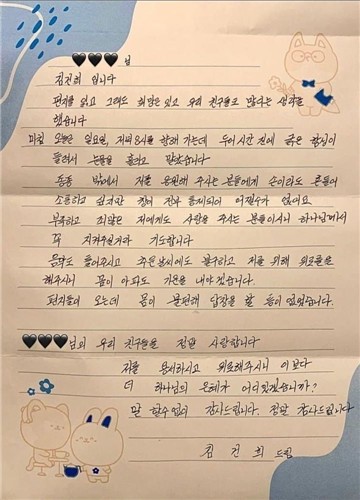 🖤🖤🖤 님
김건희 입니다
편지를 읽고 그래도 희망은 있고 우리 친구들도 많다는 생각을
했습니다
마침 오늘은 일요일, 저녁 8시를 향해 가는데 두어시간 전에 굵은 함성이
들려서 눈물을 흘리고 말았습니다
종종 밖에서 저를 응원해 주시는 분들에게 손이라도 흔들어
소통하고 싶지만 창이 전부 통제되어 어쩔수가 없어요
부족하고 죄많은 저에게도 사랑을 주시는 분들이시니 하나님께서
꼭 지켜주실거라 기도합니다
음악도 틀어주시고 추운 날씨에도 불구하고 저를 위해 위로를
해주시니 몸이 아파도 기운을 내야겠습니다.
편지들이 오는데 몸이 불편해 답장을 할 틈이 없었습니다.
🖤🖤🖤님의 우리 친구들을 정말 사랑합니다
저를 용서하시고 위로해주시니 이보다
더 하나님의 은혜가 어디있겠습니까?
말 할수 없이 감사드립니다. 정말 감사드립니다
김건희 드림